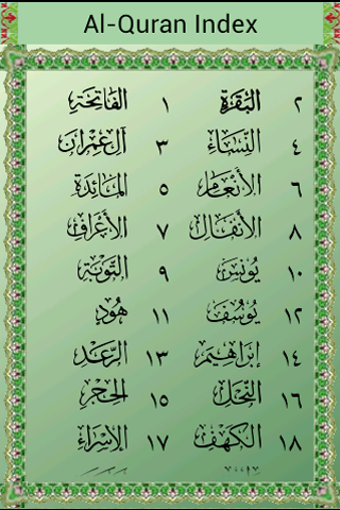 Al-Quran Index
٢ البَقَرَة ١ الفَاتِحَة
٤ النِّسَاء ٣ آل عِمْرَان
٦ الأنْعَام ٥ المَائدَة
٨ الأنْفَال ٧ الأعْرَاف
١٠ يُونُسَ ٩ التَّوبَة
١٢ يُوسُف ١١ هُود
١٤ إبْرَاهِيم ١٣ الرَّعْد
١٦ النَّحْل ١٥ الحِجْر
١٨ الكَهْف ١٧ الإسْرَاء